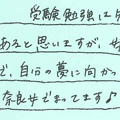 受験勉強は
あると思いますが、
で、自分の夢に向かっ
奈良女でまってます♪